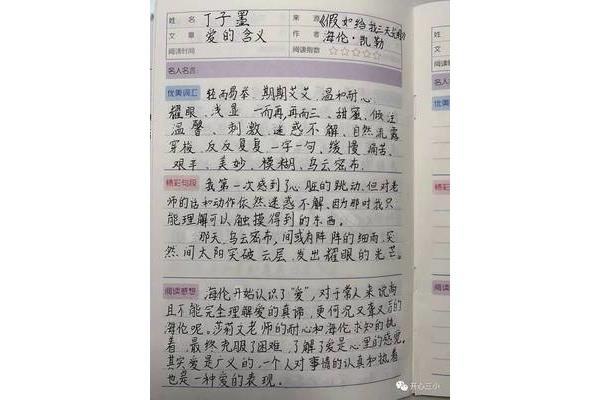 姓 名 丁子墨 来 源 《假如给我三天光明》
文 章 爱的含义 作 者 海伦·凯勒
阅读时间 阅读指数 ☆☆☆☆☆
名人名言:
优美词汇 轻而易举、期期艾艾、温和耐心
耀眼、浅显、一而再,再而三、甜蜜、倾注
温馨、刺激、迷惑不解、自然流露
穿梭、反反复复、一字一句、缓慢、痛苦、
艰辛、美妙、模糊、乌云密布、
精彩句段 我第一次感到了心脏的跳动,但对老
师的话和动作依然迷惑不解,因为那时我只
能理解可以触摸得到的东西。
那天,乌云密布,间或有阵阵的细雨,突
然间太阳突破云层,发出耀眼的光芒。
阅读感想 海伦开始认识了“爱”,对于常人来说尚
且不能完全理解爱的真谛,更何况又聋又盲的
海伦呢。莎莉文老师的耐心和海伦求知的执
着,最终克服了困难,了解了爱是心里的感觉。
其实爱是广义的,一个人对事情的认真和执着
也是一种爱的表现。
姓
文
阅读
名人
优美
精彩
阅读
开心三小